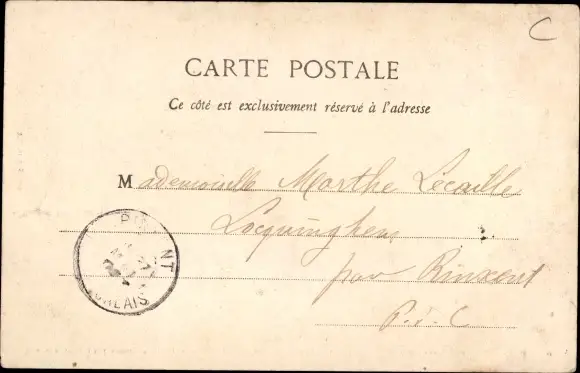 C
CARTE POSTALE
Ce côté est exclusivement réservé à l'adresse
Mademoiselle Marthe Lécaille
Locquinghen
par Rinxent
P.-d.-C
RINXENT
CALAIS